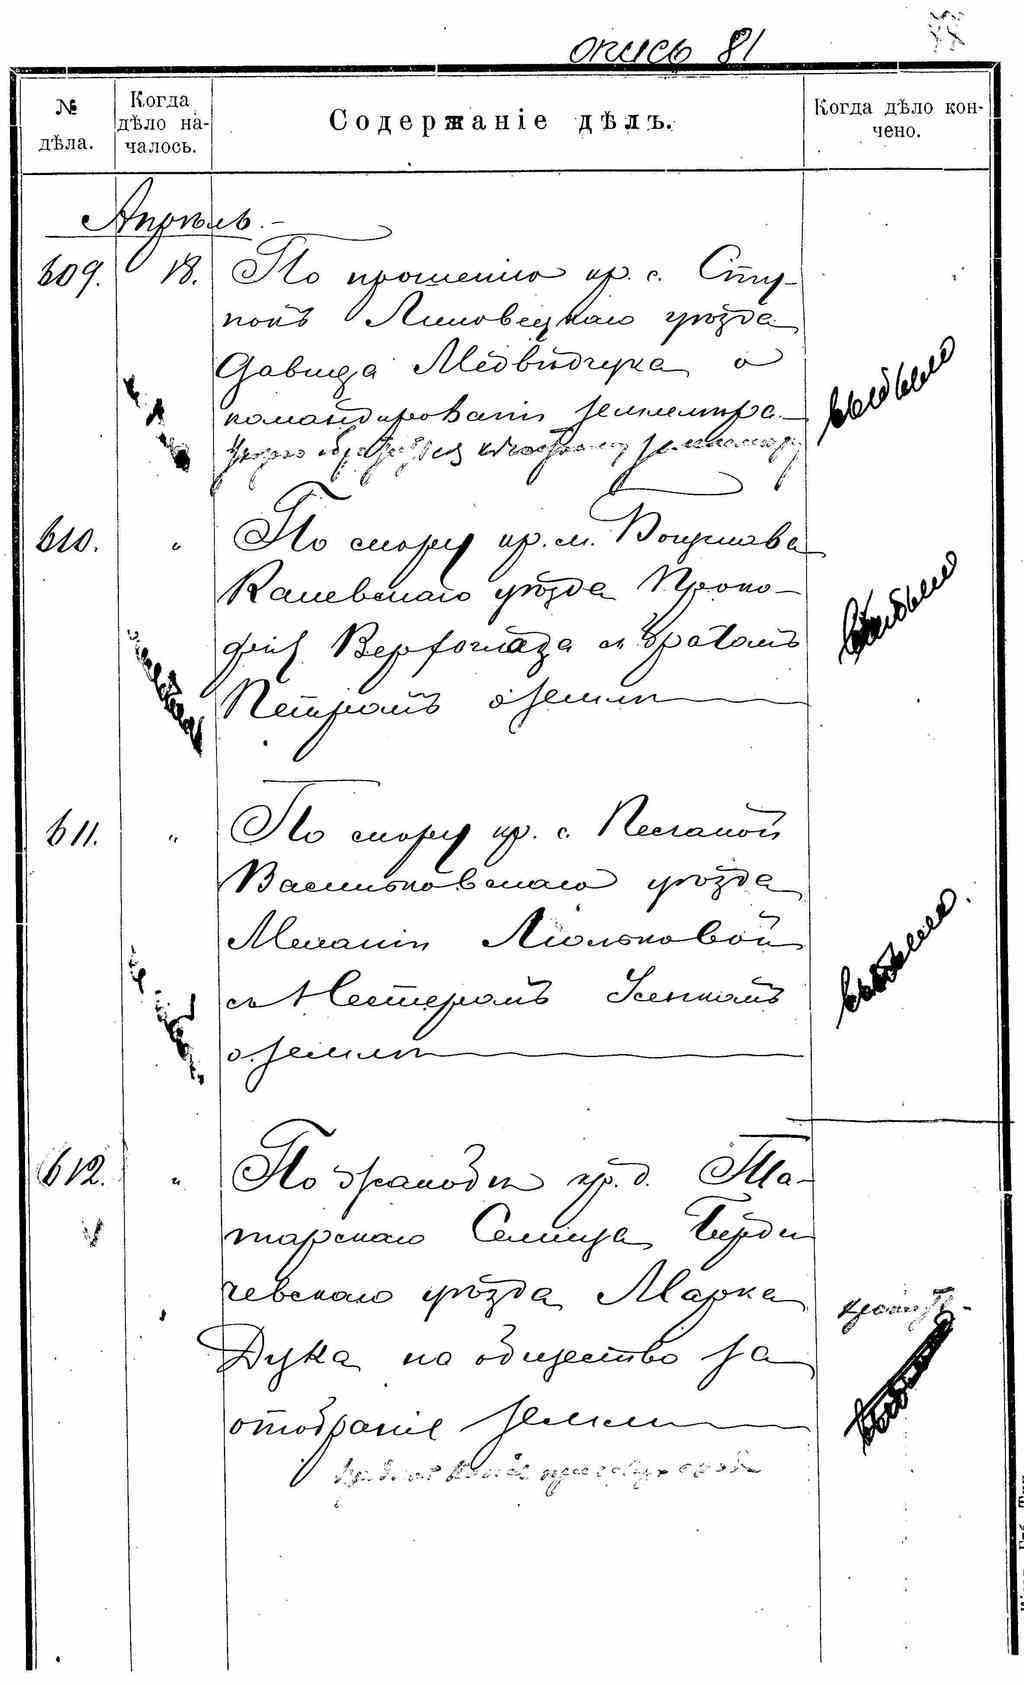 опись 81
№ дѣла.
Когда дѣло началось.
Содержаніе дѣлъ.
Когда дѣло кончено.
Апрѣль.
609. 18. По прошенію кр. с. Сту-
покъ Липовецкаго уѣзда
Давида Медвѣдчука о
командированіи землемѣра
выбыло
610. " По спору кр. м. Богуслава
Каневскаго уѣзда Проко-
фія Верхогляда съ братомъ
Петромъ о землѣ
выбыло
611. " По спору кр. с. Песчаной
Васильковскаго уѣзда
Меланіи Люльковой
съ Несторомъ Усенкомъ
о землѣ
выбыло.
612. " По жалобѣ кр. д. Та-
тарскаго Селища Берди
чевскаго уѣзда Марка
Дука на общество за
отобраніе земли
выбыло